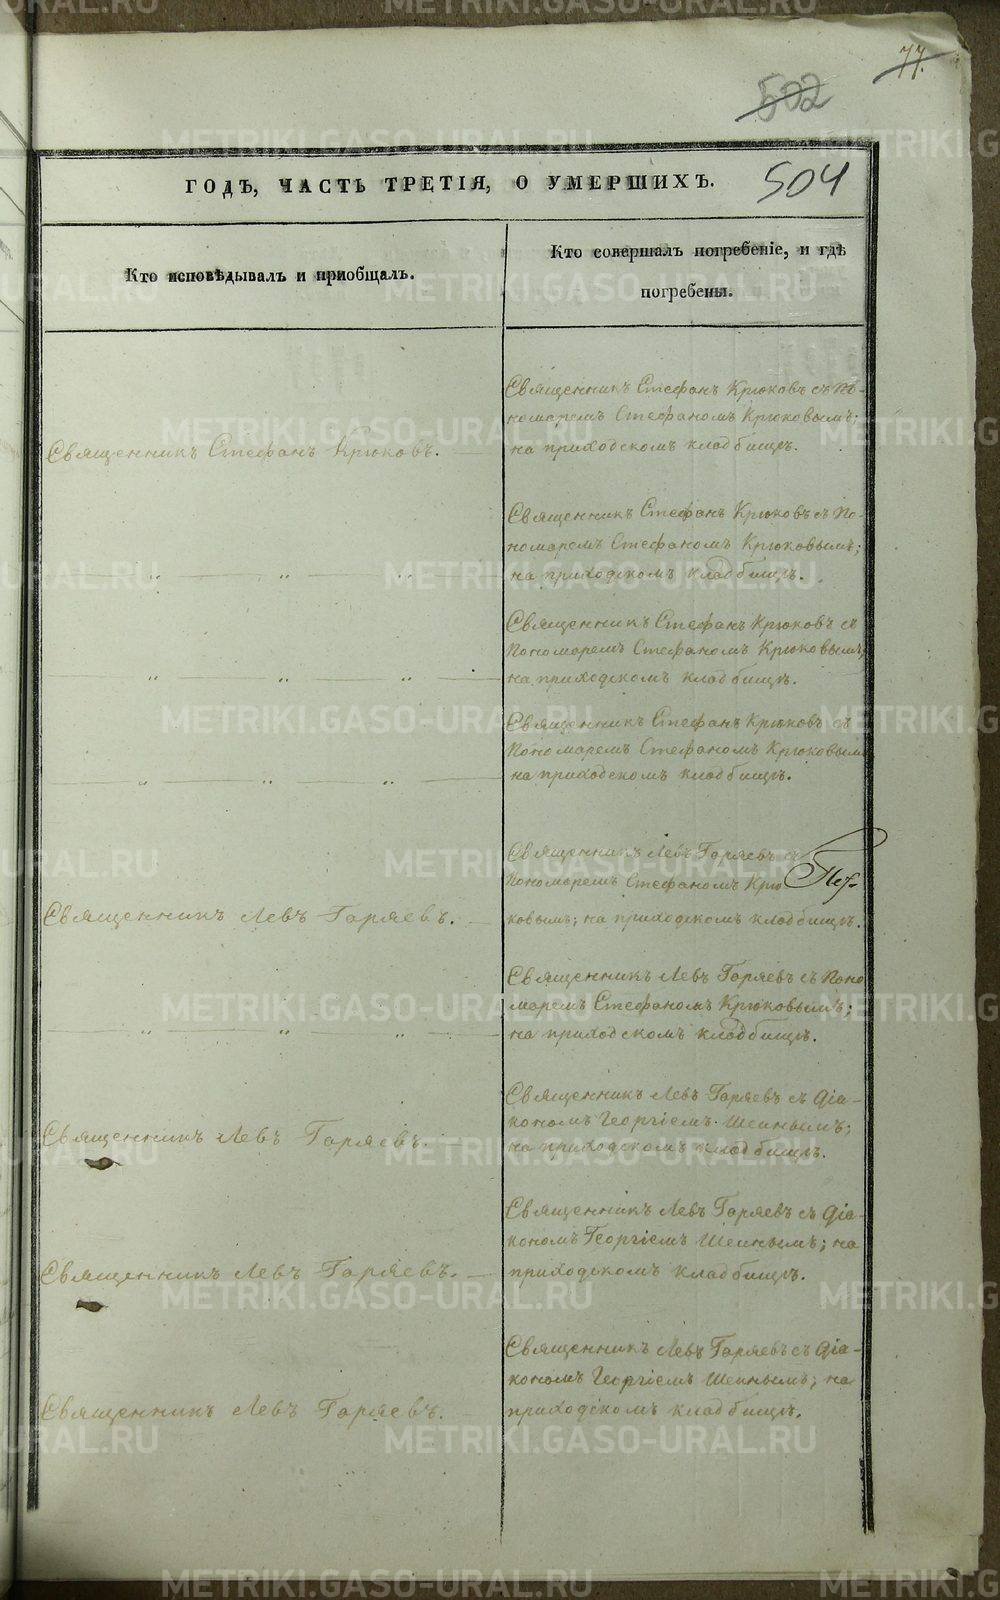 77.
502
504
ГОДЪ, ЧАСТЬ ТРЕТІЯ, О УМЕРШИХЪ.
Кто исповѣдывалъ и приобщалъ.
Кто совершалъ погребеніе, и гдѣ
погребены.
Священникъ Стефанъ Крюковъ.
Священникъ Стефанъ Крюковъ съ По-
номаремъ Стефаномъ Крюковымъ;
на приходскомъ кладбищѣ.
„ „ „
Священникъ Стефанъ Крюковъ съ По-
номаремъ Стефаномъ Крюковымъ;
на приходскомъ кладбищѣ.
„ „ „
Священникъ Стефанъ Крюковъ съ
Пономаремъ Стефаномъ Крюковымъ;
на приходскомъ кладбищѣ.
„ „ „
Священникъ Стефанъ Крюковъ съ
Пономаремъ Стефаномъ Крюковымъ
на приходскомъ кладбищѣ.
Священникъ Левъ Гаряевъ.
Священникъ Левъ Гаряевъ съ
Пономаремъ Стефаномъ Крю
ковымъ; на приходскомъ кладбищѣ.
„ „ „
Священникъ Левъ Гаряевъ съ Поно
маремъ Стефаномъ Крюковымъ;
на приходскомъ кладбищѣ.
Священникъ Левъ Гаряевъ.
Священникъ Левъ Гаряевъ съ Діа-
кономъ Георгіемъ Шеинымъ;
на приходскомъ кладбищѣ.
Священникъ Левъ Гаряевъ.
Священникъ Левъ Гаряевъ съ Діа-
кономъ Георгіемъ Шеинымъ; на
приходскомъ кладбищѣ.
Священникъ Левъ Гаряевъ.
Священникъ Левъ Гаряевъ съ Діа-
кономъ Георгіемъ Шеинымъ; на
приходскомъ кладбищѣ.
METRIKI.GASO-URAL.RU